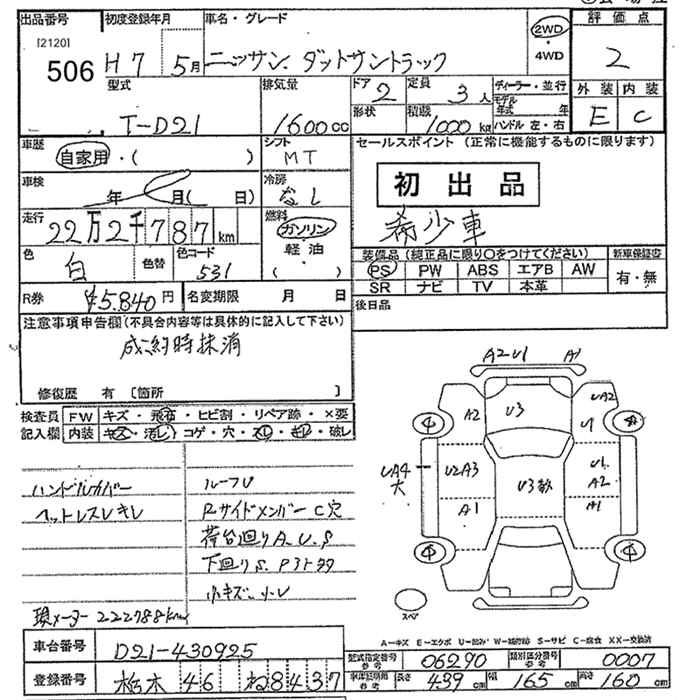 出品番号 初度登録年月 車名・グレード 評価点
[2120] 506 H7 5月 ニッサン. ダットサントラック 2WD・4WD 2
型式 排気量 ドア 2 定員 3人 ディーラー・並行 外装 内装
T-D21 1600cc 形状 積載 1000kg モデル年式 年 ハンドル 左・右 E C
車歴 自家用・( ) シフト MT セールスポイント (正常に機能するものに限ります)
車検 年 月( 日) 冷房 なし 初出品
走行 22万2千787km 燃料 ガソリン・軽油( ) 希少車
色 白 色替 色コード 531 装備品(純正品に限り○をつけてください) 新車保証書
PS PW ABS エアB AW 有・無
SR ナビ TV 本革
R券 ¥5,840円 名変期限 月 日 後日品
注意事項申告欄(不具合内容等は具体的に記入して下さい)
成約時抹消
修復歴 有 [箇所 ]
検査員記入欄 FW キズ・飛石・ヒビ割・リペア跡・×要
内装 キズ・汚レ・コゲ・穴・スレ・キレ・破レ
ハンドルカバー
ヘットレスレキレ
現メーター 222788km
ルーフU
Rサイドメンバー C穴
荷台廻りA.U.S
下廻りS.
小キズ.小U
A2U1 A1
A2 U3 UA2
U1
UA4 大 U2A3 U3数 U1 A2
A1 A1
スペ
A-キズ E-エクボ U-凹み W-補修跡 S-サビ C-腐食 XX-交換済
車台番号 D21-430925
登録番号 栃木 46 ね8437
型式指定番号 参考 06290 類別区分番号 参考 0007
車庫証明用 参考 長さ 439cm 幅 165cm 高さ 160cm